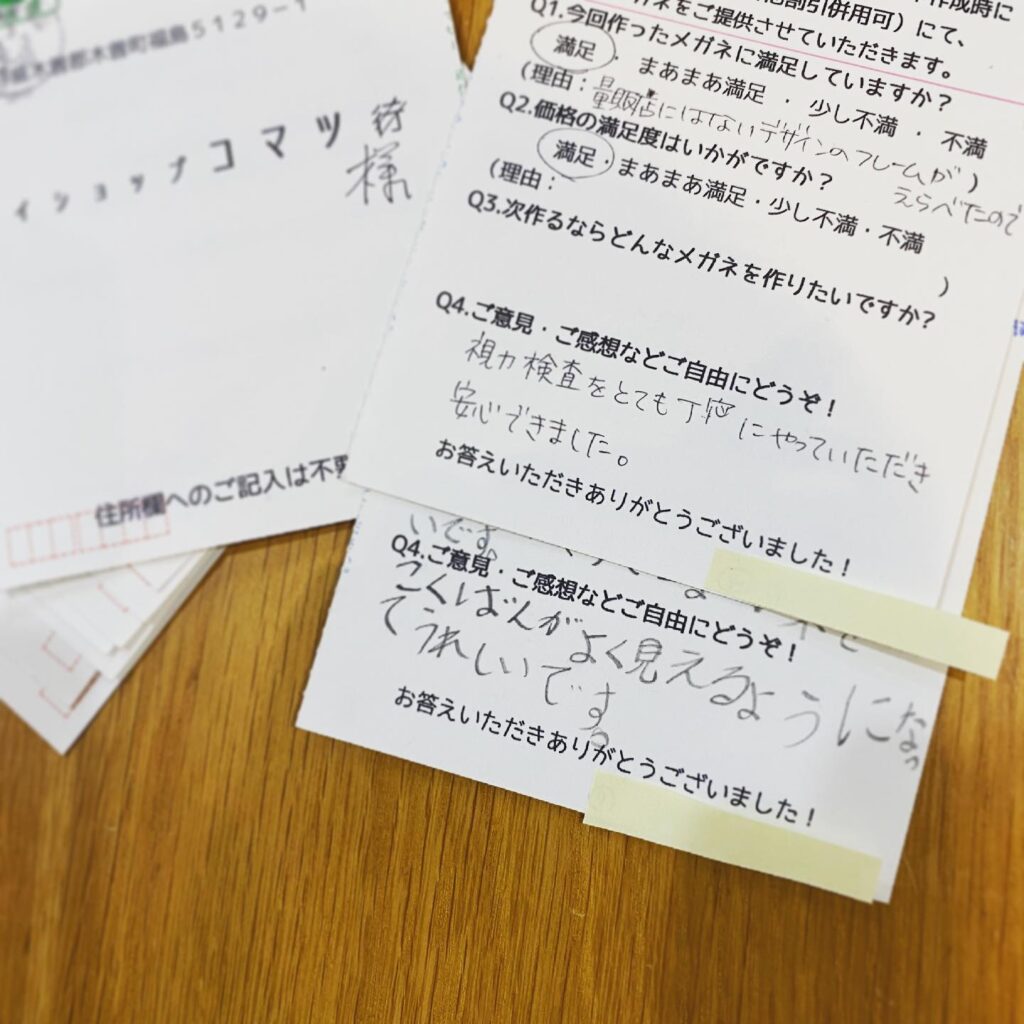 郡木曽町福島5129-1
イショップコマツ 行
様
住所欄へのご記入は不要
作成時に
割引併用可)にて、
ガネをご提供させていただきます。
Q1.今回作ったメガネに満足していますか?
満足・まあまあ満足・少し不満・不満
(理由:量販店にはないデザインのフレームが
えらべたので)
Q2.価格の満足度はいかがですか?
満足・まあまあ満足・少し不満・不満
(理由: )
Q3.次作るならどんなメガネを作りたいですか?
Q4.ご意見・ご感想などご自由にどうぞ!
視力検査をとても丁寧にやっていただき
安心できました。
お答えいただきありがとうございました!
いです。
Q4.ご意見・ご感想などご自由にどうぞ!
こくばんがよく見えるようになっ
てうれしいです。
お答えいただきありがとうございました!